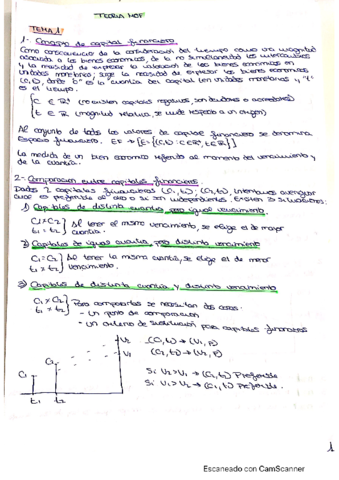 TEORIA MOF
TEMA 1
1- Concepto de capital financiero
Como consecuencia de la consideración del tiempo como una magnitud
asociada a los bienes económicos, de la no simultaneidad los intercambios
y la necesidad de expresar la valoración de los bienes económicos en
unidades monetarias; surge la necesidad de expresar los bienes económicos,
(C,t), donde "C" es la cuantía del capital (en unidades monetarias) y "t"
es el tiempo.
C ∈ R⁺ (no existen capitales negativos, son deudores o acreedores)
t ∈ R (magnitud relativa, se mide respecto a un origen)
Al conjunto de todos los valores de capital financiero se denomina
Espacio financiero. EF → {E=(C,t): C∈R⁺, t∈R}
La medida de un bien económico referido al momento del vencimiento y
de la cuantía.
2- Comparacion entre capitales financieros.
Dados 2 capitales financieros (C₁,t₁); (C₂,t₂), intentamos averiguar
cual es preferible al otro o si son indiferentes. Existen 3 situaciones:
1) Capitales de distinta cuantía pero igual vencimiento.
C₁≠C₂
t₁ = t₂
Al tener el mismo vencimiento, se elige el de mayor
cuantía.
2) Capitales de igual cuantía, pero distinto vencimiento
C₁=C₂
t₁ ≠ t₂
Al tener la misma cuantía, se elige el de menor
vencimiento.
3) Capitales de distinta cuantía y distinto vencimiento
C₁ ≠ C₂
t₁ ≠ t₂
Para compararlos se necesitan dos cosas:
- Un punto de comparación
- Un criterio de sustitución para capitales financieros
V₂
V₁
C₂
C₁
t₁ t₂
(C₁,t₁) → (V₁,P)
(C₂,t₂) → (V₂,P)
Si V₂>V₁ → (C₂,t₂) Preferible
Si V₁>V₂ → (C₁,t₁) Preferible.
1
Escaneado con CamScanner